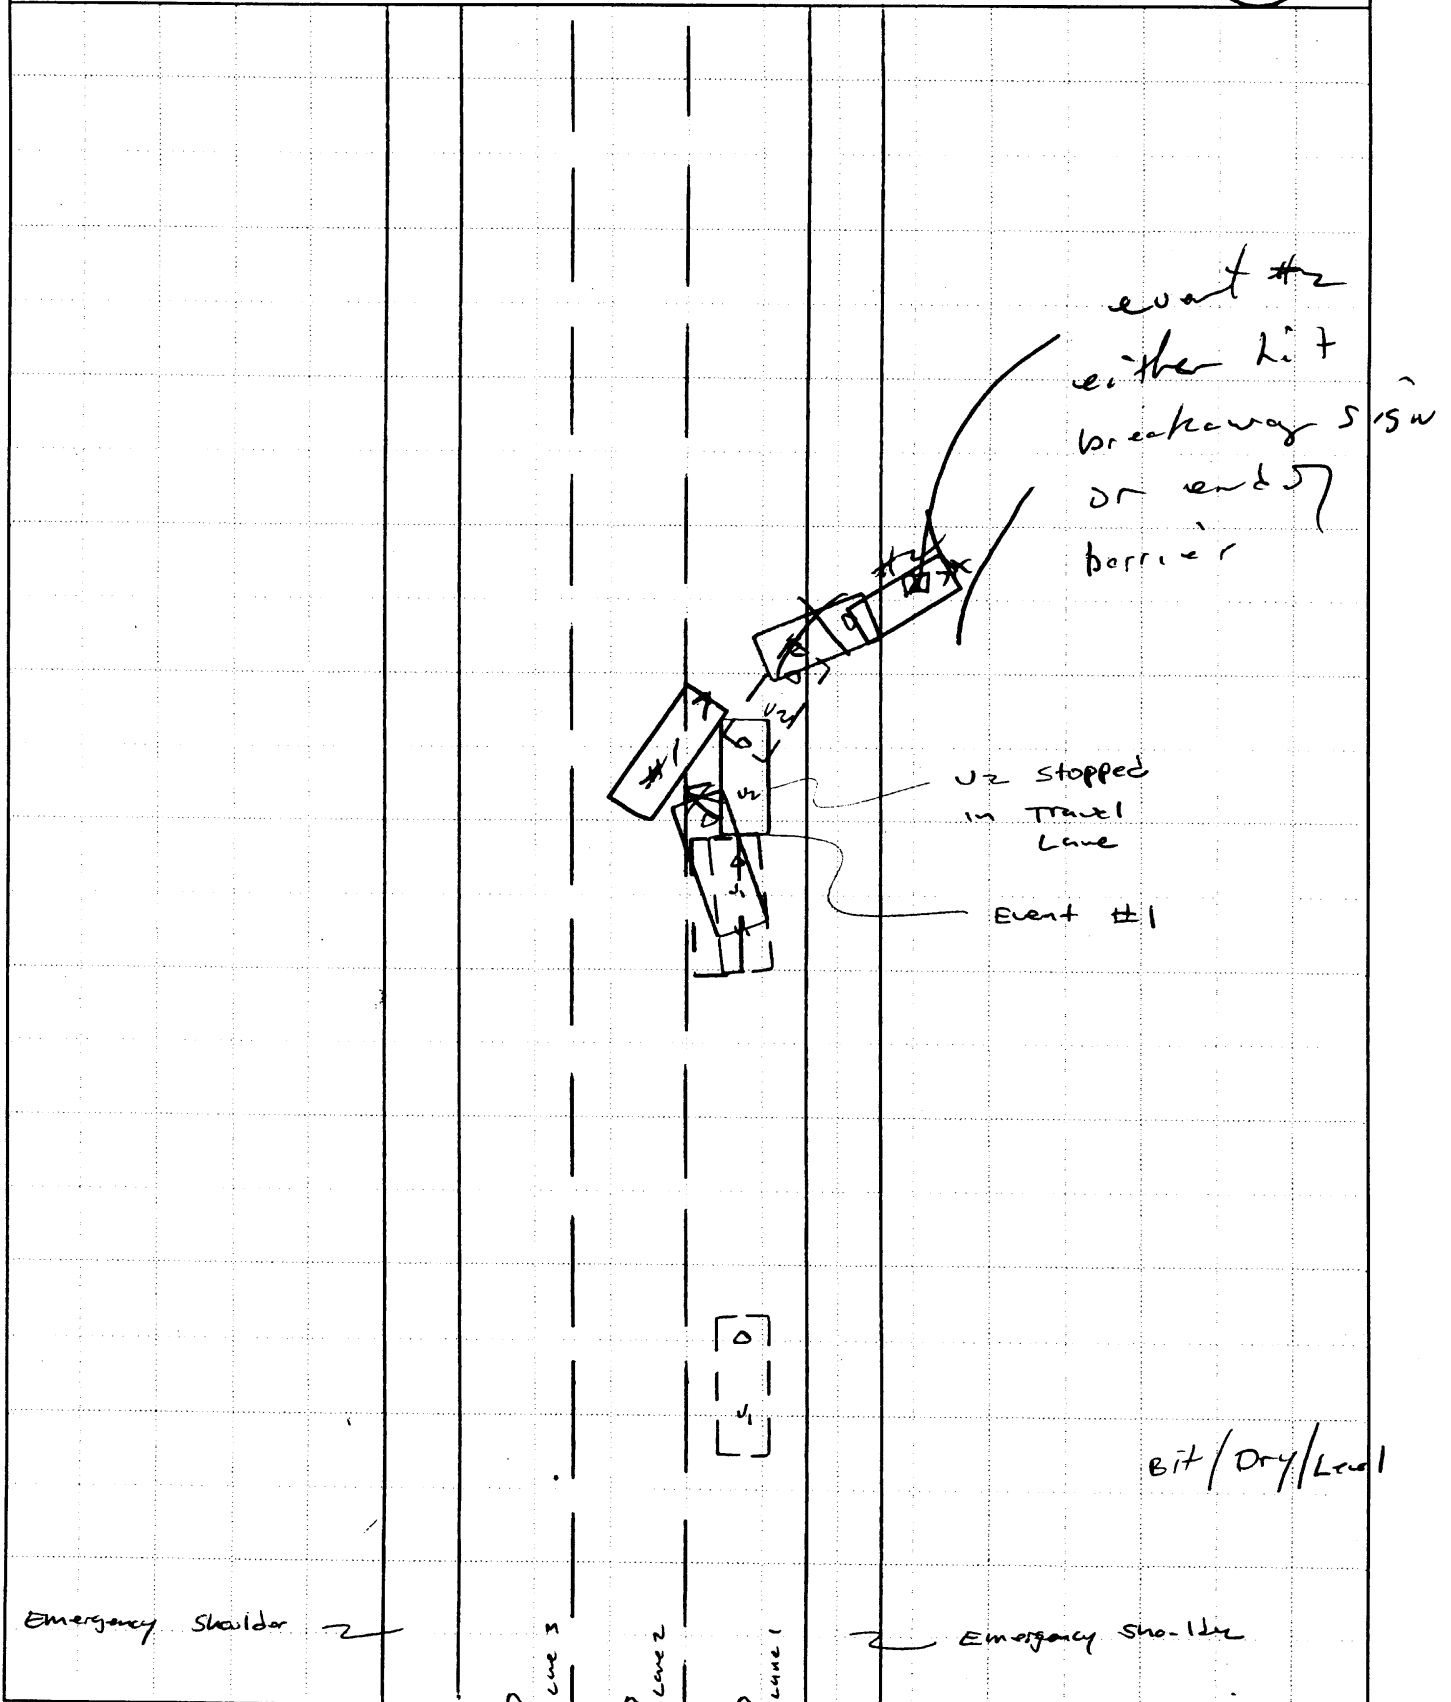 event #2
either hit
breakaway sign
or end of
barrier
#2
#1
V2
V2
V2 stopped
in Travel
Lane
V1
Event #1
V1
Bit/Dry/Level
Emergency Shoulder
Lane 3
Lane 2
Lane 1
Emergency Shoulder